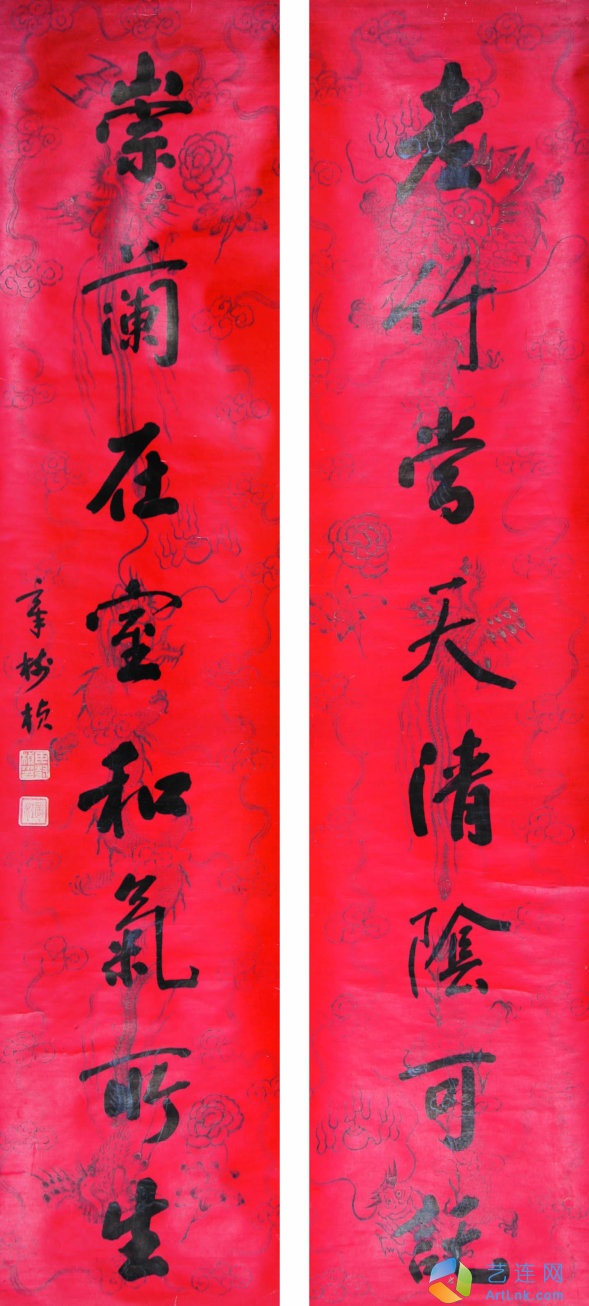 老竹當天清陰可託
崇蘭在室和氣所生
章樹楨
艺连网
ArtLnk.com